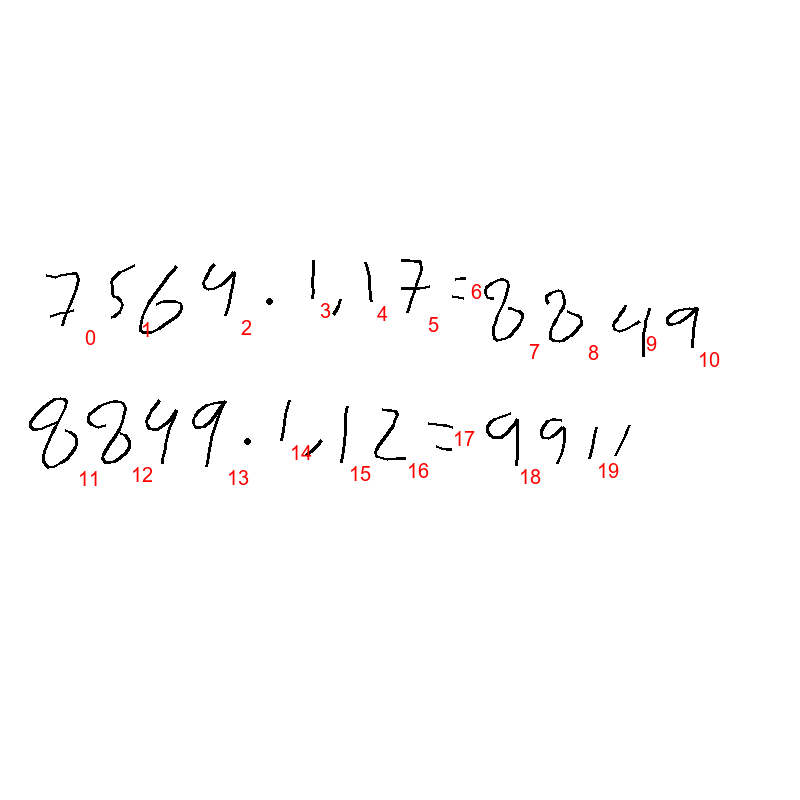 7564 . 1,17 = 8849
0 1 2 3 4 5 6 7 8 9 10
8849 . 1,12 = 9911
11 12 13 14 15 16 17 18 19